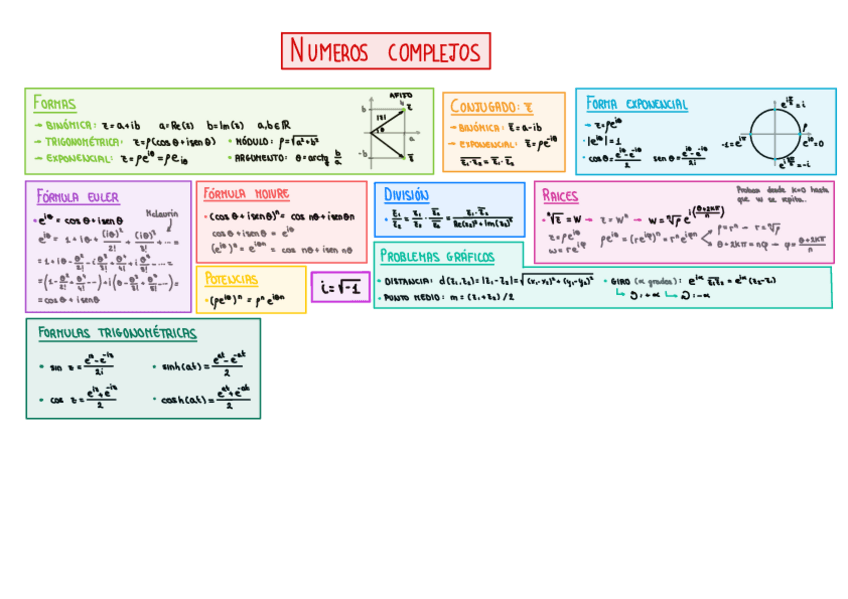 NUMEROS COMPLEJOS
FORMAS
→ BINÓMICA: z = a+ib a=Re(z) b=Im(z) a,b∈ℝ
→ TRIGONOMÉTRICA: z=ρ(cos θ + i sen θ) • MÓDULO: ρ=√(a²+b²)
→ EXPONENCIAL: z=ρe^(iθ) = ρe^(iθ) • ARGOMENTO: θ=arctg b/a
AFIJO
b
z
|z|
θ
a
-b
z̄
CONJUGADO: z̄
→ BINÓMICA: z̄ = a-ib
→ EXPONENCIAL: z̄ = ρe^(-iθ)
z₁·z₂ = z̄₁·z̄₂
FORMA EXPONENCIAL
→ z=ρe^(iθ)
• |e^(iθ)| = 1
• cos θ = (e^(iθ) - e^(-iθ))/2 sen θ = (e^(iθ) - e^(-iθ))/2i
e^(iπ/2) = i
-1 = e^(iπ)
ρ
e^(i0) = 0
= -i
FÓRMULA EULER
• e^(iθ) = cos θ + i sen θ
Mclaurin
e^(iθ) = 1 + iθ + (iθ)²/2! + (iθ)³/3! + ... =
= 1 + iθ - θ²/2! - i θ³/3! + θ⁴/4! + i θ⁵/5! - ... =
= (1 - θ²/2! + θ⁴/4! ...) + i(θ - θ³/3! + θ⁵/5! ...) =
= cos θ + i sen θ
FÓRMULA MOIVRE
• (cos θ + i sen θ)ⁿ = cos nθ + i sen θn
cos θ + i sen θ = e^(iθ)
(e^(iθ))ⁿ = e^(iθn) = cos nθ + i sen nθ
DIVISIÓN
• z₁/z₂ = z₁/z₂ · z̄₂/z̄₂ = z₁·z̄₂/(Re(z₂)² + Im(z₂)²)
RAICES
Probar desde k=0 hasta
que w se repita.
• ⁿ√z = w → z = wⁿ → w = ⁿ√ρ e^(i((θ+2kπ)/n))
z = ρe^(iθ) ρe^(iθ) = (re^(iφ))ⁿ = rⁿe^(iφn) ρ = rⁿ → r = ⁿ√ρ
w = re^(iφ) θ + 2kπ = nφ → φ = (θ+2kπ)/n
POTENCIAS
• (ρe^(iθ))ⁿ = ρⁿ e^(iθn)
i = √-1
PROBLEMAS GRÁFICOS
• DISTANCIA: d(z₁,z₂) = |z₁-z₂| = √((x₁-x₂)² + (y₁-y₂)²) • GIRO (α grados): e^(iα) z₁z₂ = e^(iα)(z₂-z₁)
• PUNTO MEDIO: m = (z₁+z₂)/2
FORMULAS TRIGONOMÉTRICAS
• sin z = (e^(iz) - e^(-iz))/2i • sinh(at) = (e^(at) - e^(-at))/2
• cos z = (e^(iz) + e^(-iz))/2 • cosh(at) = (e^(at) + e^(-at))/2